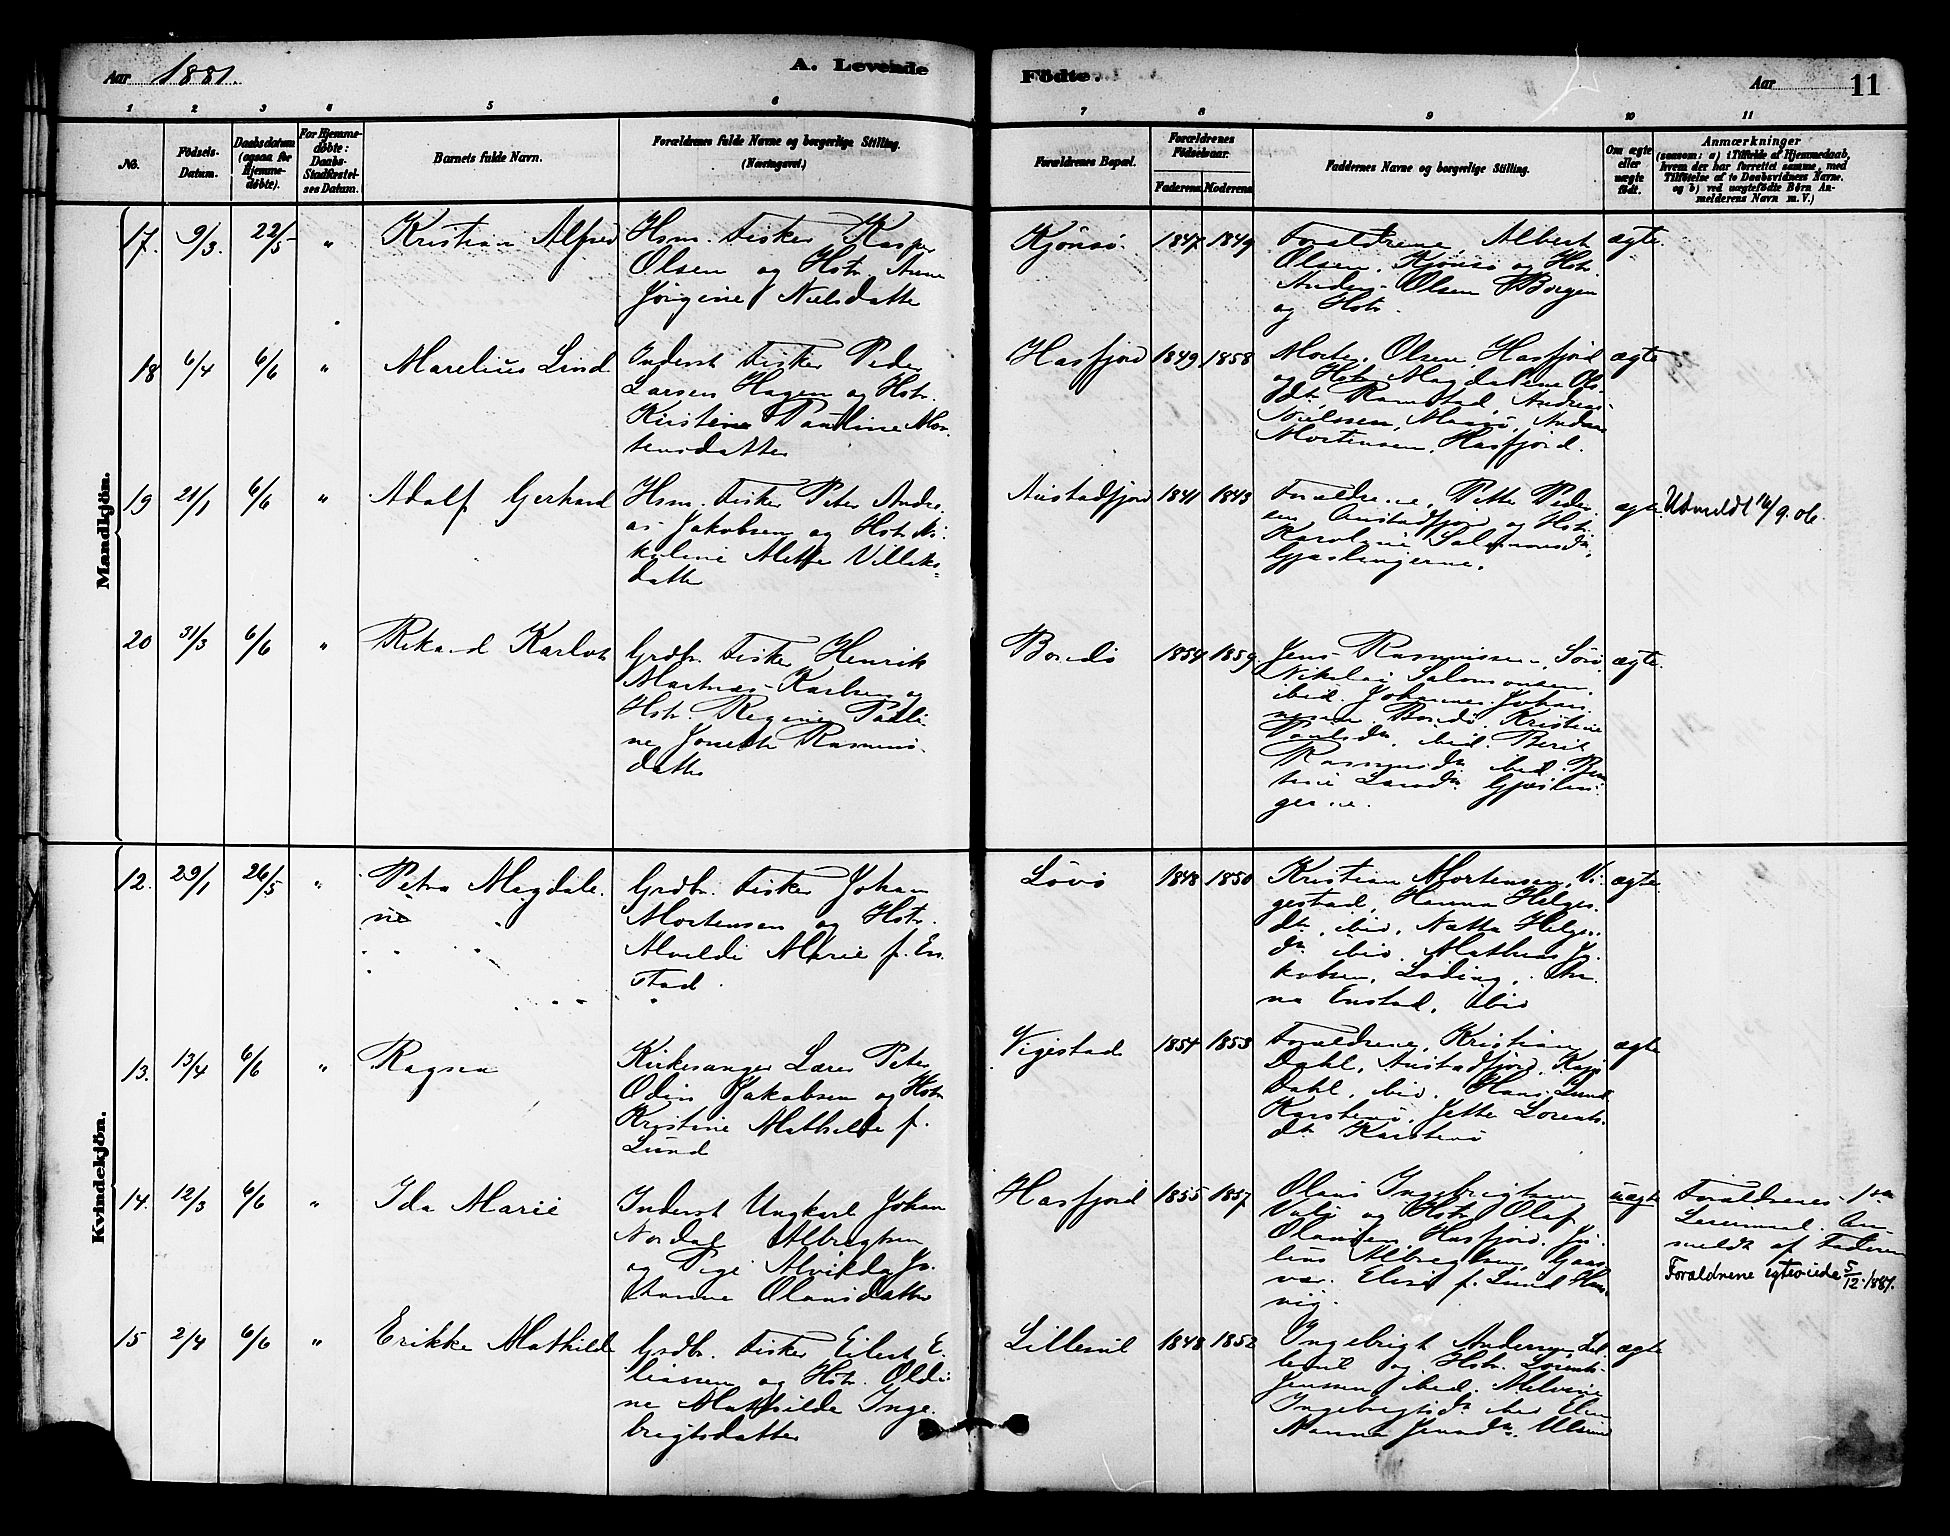 Aar 1881.
A. Levende Fødte.
Aar 11
1 2 3 4 5 6 7 8 9 10 11
No.
Fødsels-Datum.
Daabsdatum (ogsaa for Hjemme-døbte).
For Hjemme-døbte: Daabs-Stadfæstel-ses Datum.
Barnets fulde Navn.
Forældrenes fulde Navne og borgerlige Stilling.
(Næringsvei.)
Forældrenes Bopæl.
Forældrenes Fødselsaar.
Faderens Moderens
Faddernes Navne og borgerlige Stilling.
Om ægte eller uægte født.
Anmærkninger
(saasom: a) i Tilfælde af Hjemmedaab,
hvem der har forrettet samme, med
Tilføielse af to Daabsvidners Navne.
og b) ved uægtefødte Børn An-
melderens Navn m. V.)
Mandkjön.
17. 9/3. 22/5 " Kristian Alfred
Hsm. Fisker Kasper
Olsen og Hstr. Anne
Jörgine Nielsdatter
Kjönsö. 1847 1849
Forældrene, Albert
Olsen, Kjönsö og Hstr.
Anders Olsen Borgen
og Hstr.
ægte
18 6/4 6/6 " Marelius Lind
Inderst Fisker Peder
Larsen Hagen og Hstr.
Kristine Pauline Mor-
tensdatter
Hasfjord 1849 1858
Morten Olsen, Hasfjord
og Hstr. Magdalene Ols
dt. Ramstad, Andreas
Nielssen,
Mortensen, Hasfjord.
ægte
19 21/1 6/6 " Adolf Gerhard
Hsm. Fisker Peter Andre-
as Jakobsen og Hstr. Ni-
koline Mette Villiks-
datter
Austadfjord 1841 1843
Forældrene, Petter Peder-
sen Austadfjord og Hstr.
Karoline Salomonsdr.
Gjæslingerne.
ægte. Utmeldt 16/9.06.
20 31/3 6/6 " Rikard Karlot
Grdbr. Fisker Henrik
Martinus Karlsen og
Hstr. Regine Pauli-
ne Jonette Rasmus-
datter
Bondö 1854 1859.
Jens Rasmussen, Sörö
Nikolai Salomonsen
ibid. Johannes Johan-
nesen Bondö. Kristine
Paulsdr. ibid. Berit
Rasmusdr. ibid.
Larsdr. Gjæslin-
gerne.
ægte.
Kvindekjön.
12. 29/1 26/5 " Petra Magdale-
ne
Grdbr. Fisker Johan
Mortensen og Hstr.
Alvilde Marie f. En-
stad.
Lövö 1848 1850
Kristian Mortensen, Vi-
gestad, Hanna Helges-
dt. ibid, Natta Helges-
dr. ibid. Mathias Ja-
kobsen, Löding,
Enstad, ibid
ægte
13. 13/4 6/6 " Ragna
Kirkesanger Lærer Peter
Odin Jakobsen og Hstr.
Kristine Mathilde f.
Lund
Vigestad 1854 1853
Forældrene, Kristian
Dahl, Austadfjord, Kaja
Dahl, ibid. Hans Lund
Karstenö, Jette Lorents-
dt. Karstenö
ægte
14. 12/3 6/6 " Ida Marie
Inderst Ungkarl Johan
Nordal Albrigtsen
og Pige Alvilda Jo-
hanna Olausdatter
Hasfjord 1855 1857
Olaus Ingebrigtsen
Valö og Hstr. Olaf
Olausen, Hasfjord. Ju-
lius Albrigtsen,
Elise f. Lund
vig.
uægte
Forældrenes 1ste
Leiermaal. An-
meldt af Faderen
Forældrene egteviede 5/12. 1881.
15 2/4 6/6 " Erikke Mathilde
Grdbr. Fisker Eilert E-
liassen og Hstr. Oldi-
ne Mathilde Inge-
brigtsdatter
Lillevil 1848 1852
Ingebrigt Andersen Lil-
levil og Hstr. Lorents
Jensen ibid. Melvine
Ingebrigtsdr. ibid Elen
Hanna Jensdr.
ægte